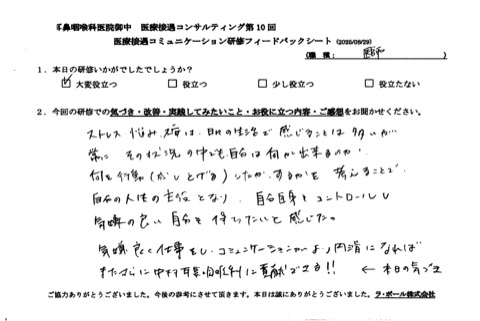 耳鼻咽喉科医院御中　医療接遇コンサルティング第10回
医療接遇コミュニケーション研修フィードバックシート（2025/06/29）
（職 種： 医師 ）
1．本日の研修いかがでしたでしょうか？
☑ 大変役立つ　□ 役立つ　□ 少し役立つ　□ 役立たない
2．今回の研修での気づき・改善・実践してみたいこと・お役に立つ内容・ご感想をお聞かせください。
ストレス 悩み は、日々の生活で感じることは多いが…
常に その状況の中でも自分は何が出来るのか、
何を行動（かしとげる）したか、するかを考えることで、
自分の人生の主役となり、自分自身をコントロールし
気嫌の良い自分を保ちたいと感じた。
気嫌良く仕事をし、コミュニケーションがより円滑になれば
またさらに中村耳鼻咽喉科に貢献できる!! ← 本日の気づき
ご協力ありがとうございました。今後の参考にさせて頂きます。本日は誠にありがとうございました。ラ・ポール株式会社